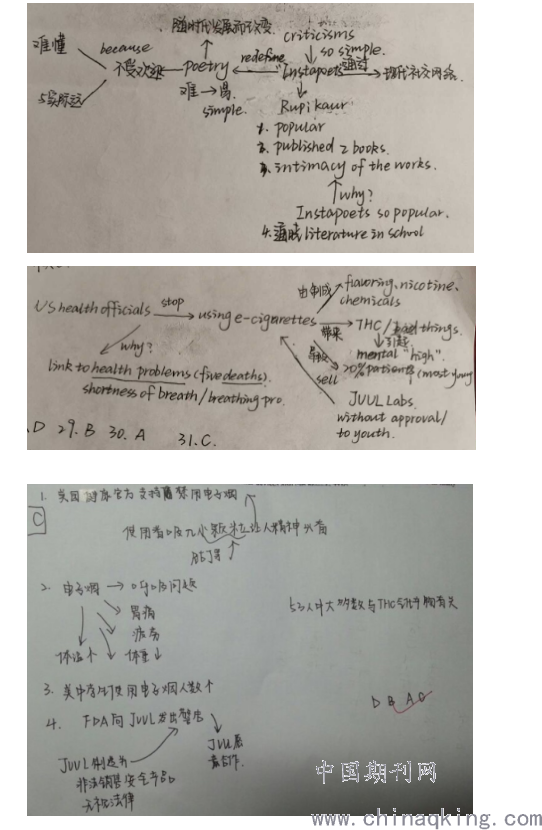 随时代发展而改变
criticisms
难懂 because so simple.
不受欢迎 poetry redefine "Instapoets" 通过 现代社交网络.
与实际远 难→易 simple.
Rupi kaur
1. popular
2. published 2 books.
3. intimacy of the works.
why?
Instapoets so popular.
4. literature in school
US health officials stop using e-cigarettes 由制成 flavoring, nicotine, chemicals
带来 THC/bad things.
why? 引起
mental "high".
link to health problems (five deaths). 导致 20% patient (most young
shortness of breath/breathing pro. sell JUUL Labs.
without approval/
to youth.
.D 29.B 30.A 31.C.
1. 美国 官方支持 禁用电子烟
C
使用者 让人精神兴奋
2. 电子烟 → 呼吸问题
胃病
疲劳
体温↑ 体重↓
53人中大多数与THC 有关
3. 美 中学生使用电子烟人数↑
D B A C
4. FDA向JUUL发出警告
JUUL
合作.
JUUL制造并
非法销售 产品
法律
中国期刊网
www.chinaqking.com